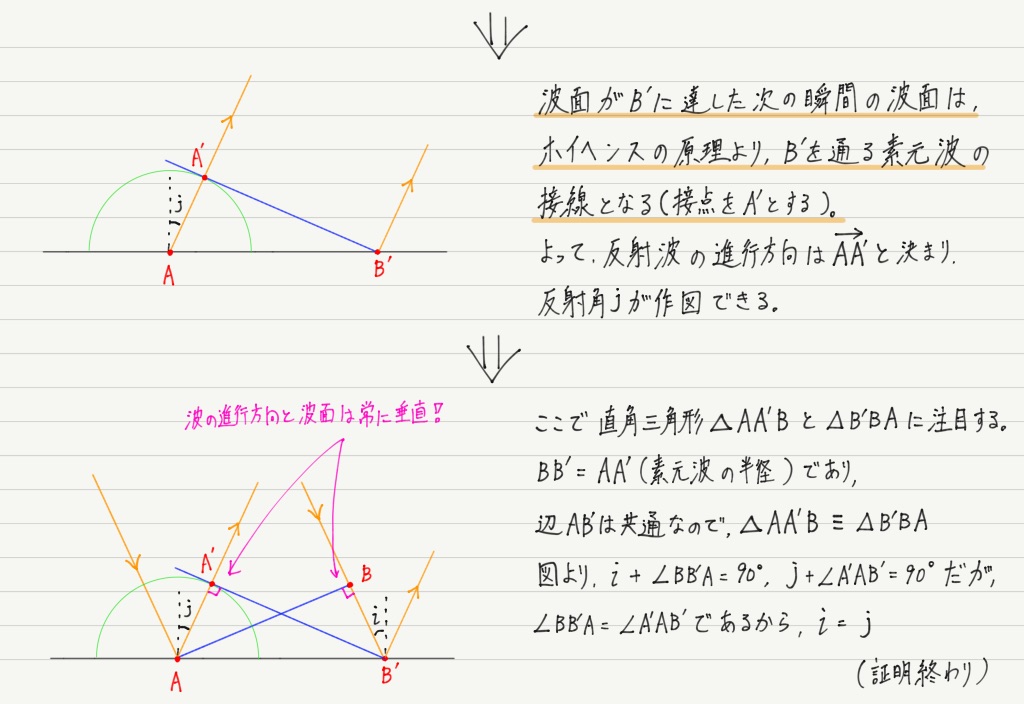 波面がB'に達した次の瞬間の波面は,
ホイヘンスの原理より, B'を通る素元波の
接線となる(接点をA'とする)。
よって, 反射波の進行方向はAA'と決まり,
反射角jが作図できる。
A'
j
A
B'
波の進行方向と波面は常に垂直!
ここで直角三角形△AA'Bと△B'BAに注目する。
BB'=AA'(素元波の半径)であり,
辺AB'は共通なので, △AA'B≡△B'BA
図より, i+∠BB'A=90°, j+∠A'AB'=90°だが,
∠BB'A=∠A'AB'であるから, i=j
(証明終わり)
A'
B
j
i
A
B'